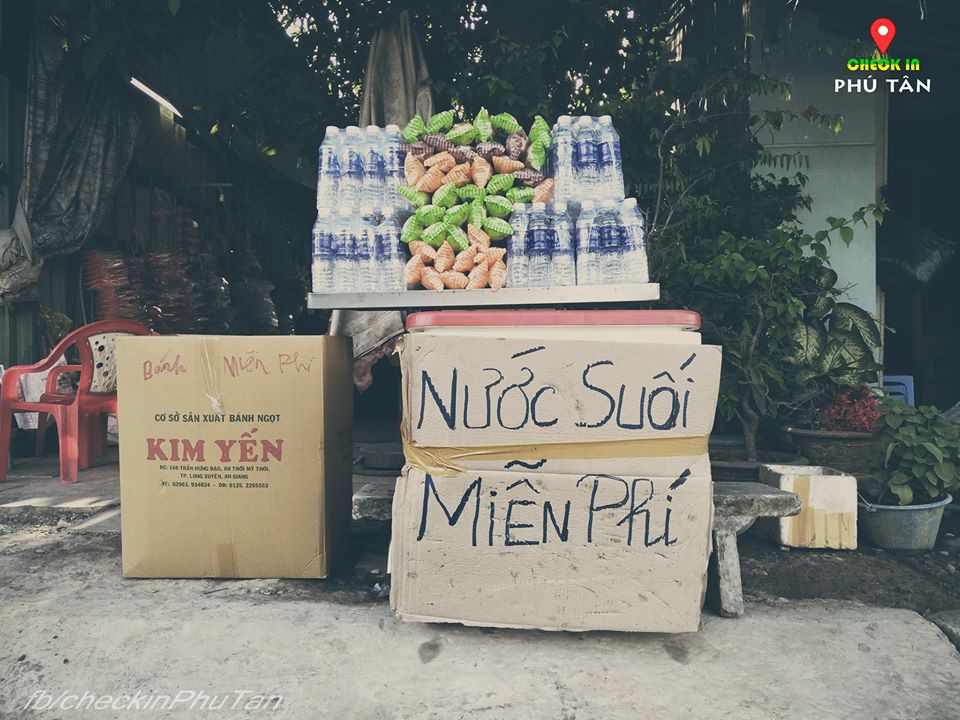 CHECK IN
PHÚ TÂN
Bánh Miễn Phí
CƠ SỞ SẢN XUẤT BÁNH NGỌT
KIM YẾN
ĐC: 160 TRẦN HƯNG ĐẠO, AN THỚI MỸ THỚI,
TP. LONG XUYÊN, AN GIANG
ĐT: 02963. 934824 - DĐ: 0125. 2255553
NƯỚC SUỐI
MIỄN PHÍ
fb/checkinPhuTan